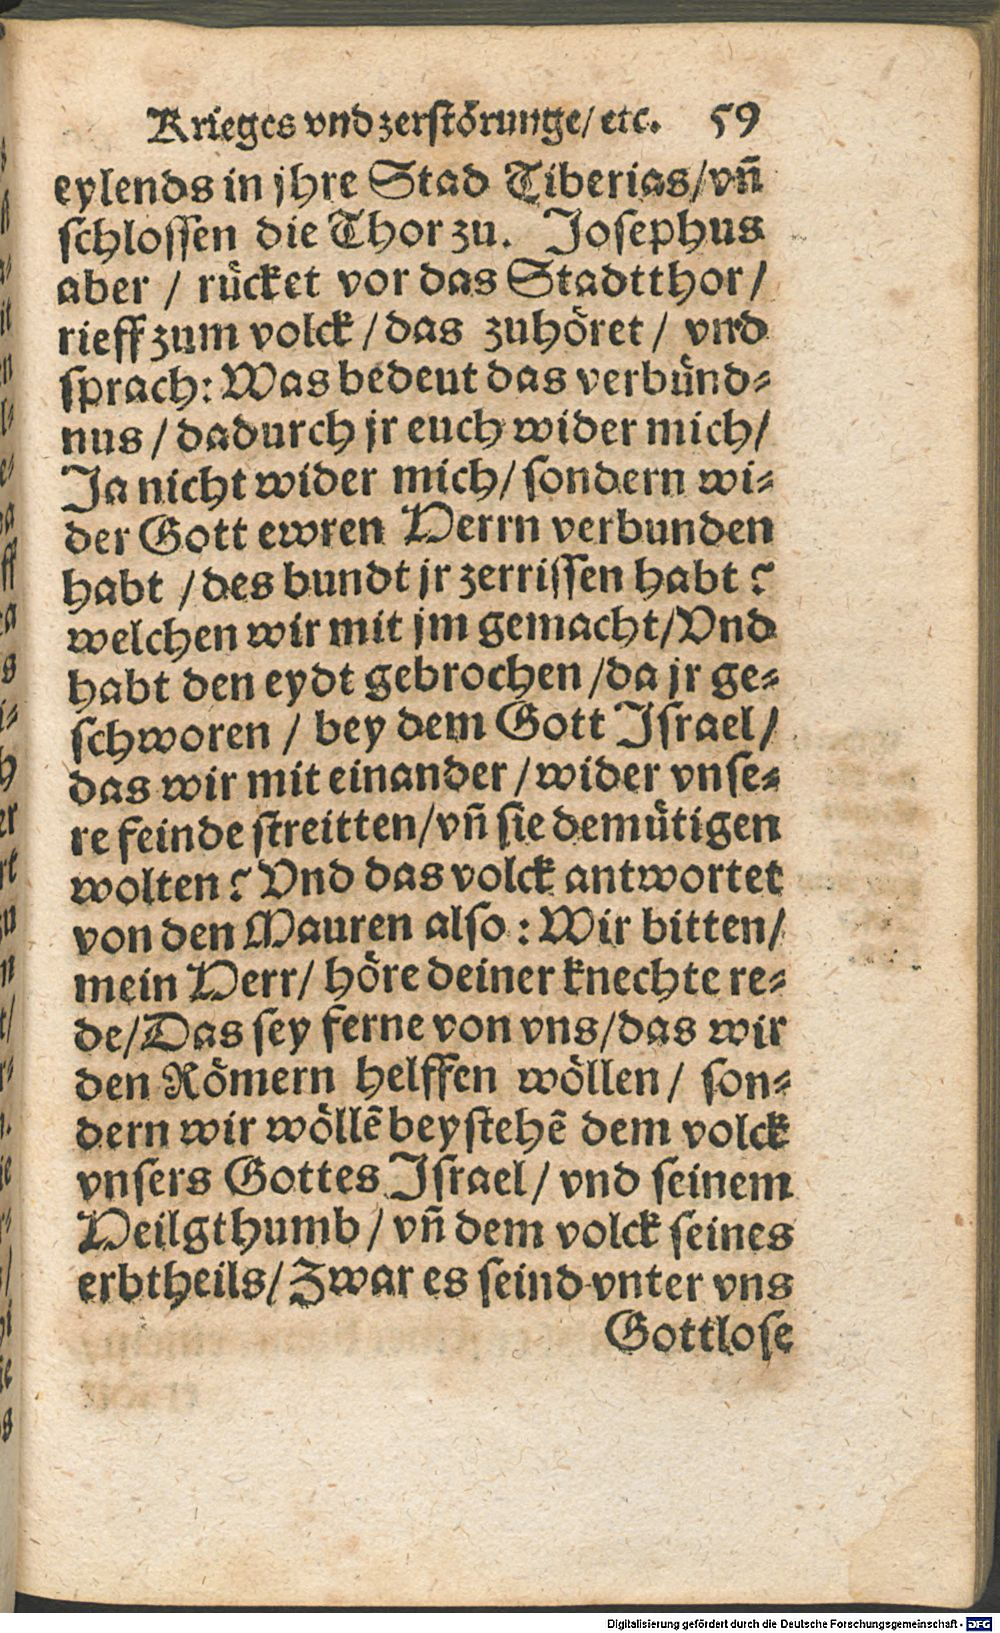 Krieges vnd zerstörunge/ etc. 59
eylends in jhre Stad Tiberias/vñ
schlossen die Thor zu. Josephus
aber / rücket vor das Stadtthor/
rieff zum volck / das zuhöret / vnd
sprach: Was bedeut das verbünd⸗
nus / dadurch jr euch wider mich/
Ja nicht wider mich/ sondern wi⸗
der Gott ewren Herrn verbunden
habt / des bundt jr zerrissen habt?
welchen wir mit jm gemacht/Vnd
habt den eydt gebrochen /da jr ge⸗
schworen / bey dem Gott Israel/
das wir mit einander / wider vnse⸗
re feinde streitten/vñ sie demütigen
wolten? Vnd das volck antwortet
von den Mauren also: Wir bitten/
mein Herr/ höre deiner knechte re⸗
de/Das sey ferne von vns/das wir
den Römern helffen wöllen/ son⸗
dern wir wöllẽ beystehẽ dem volck
vnsers Gottes Israel/ vnd seinem
Heilgthumb / vñ dem volck seines
erbtheils/ Zwar es seind vnter vns
Gottlose
Digitalisierung gefördert durch die Deutsche Forschungsgemeinschaft - DFG